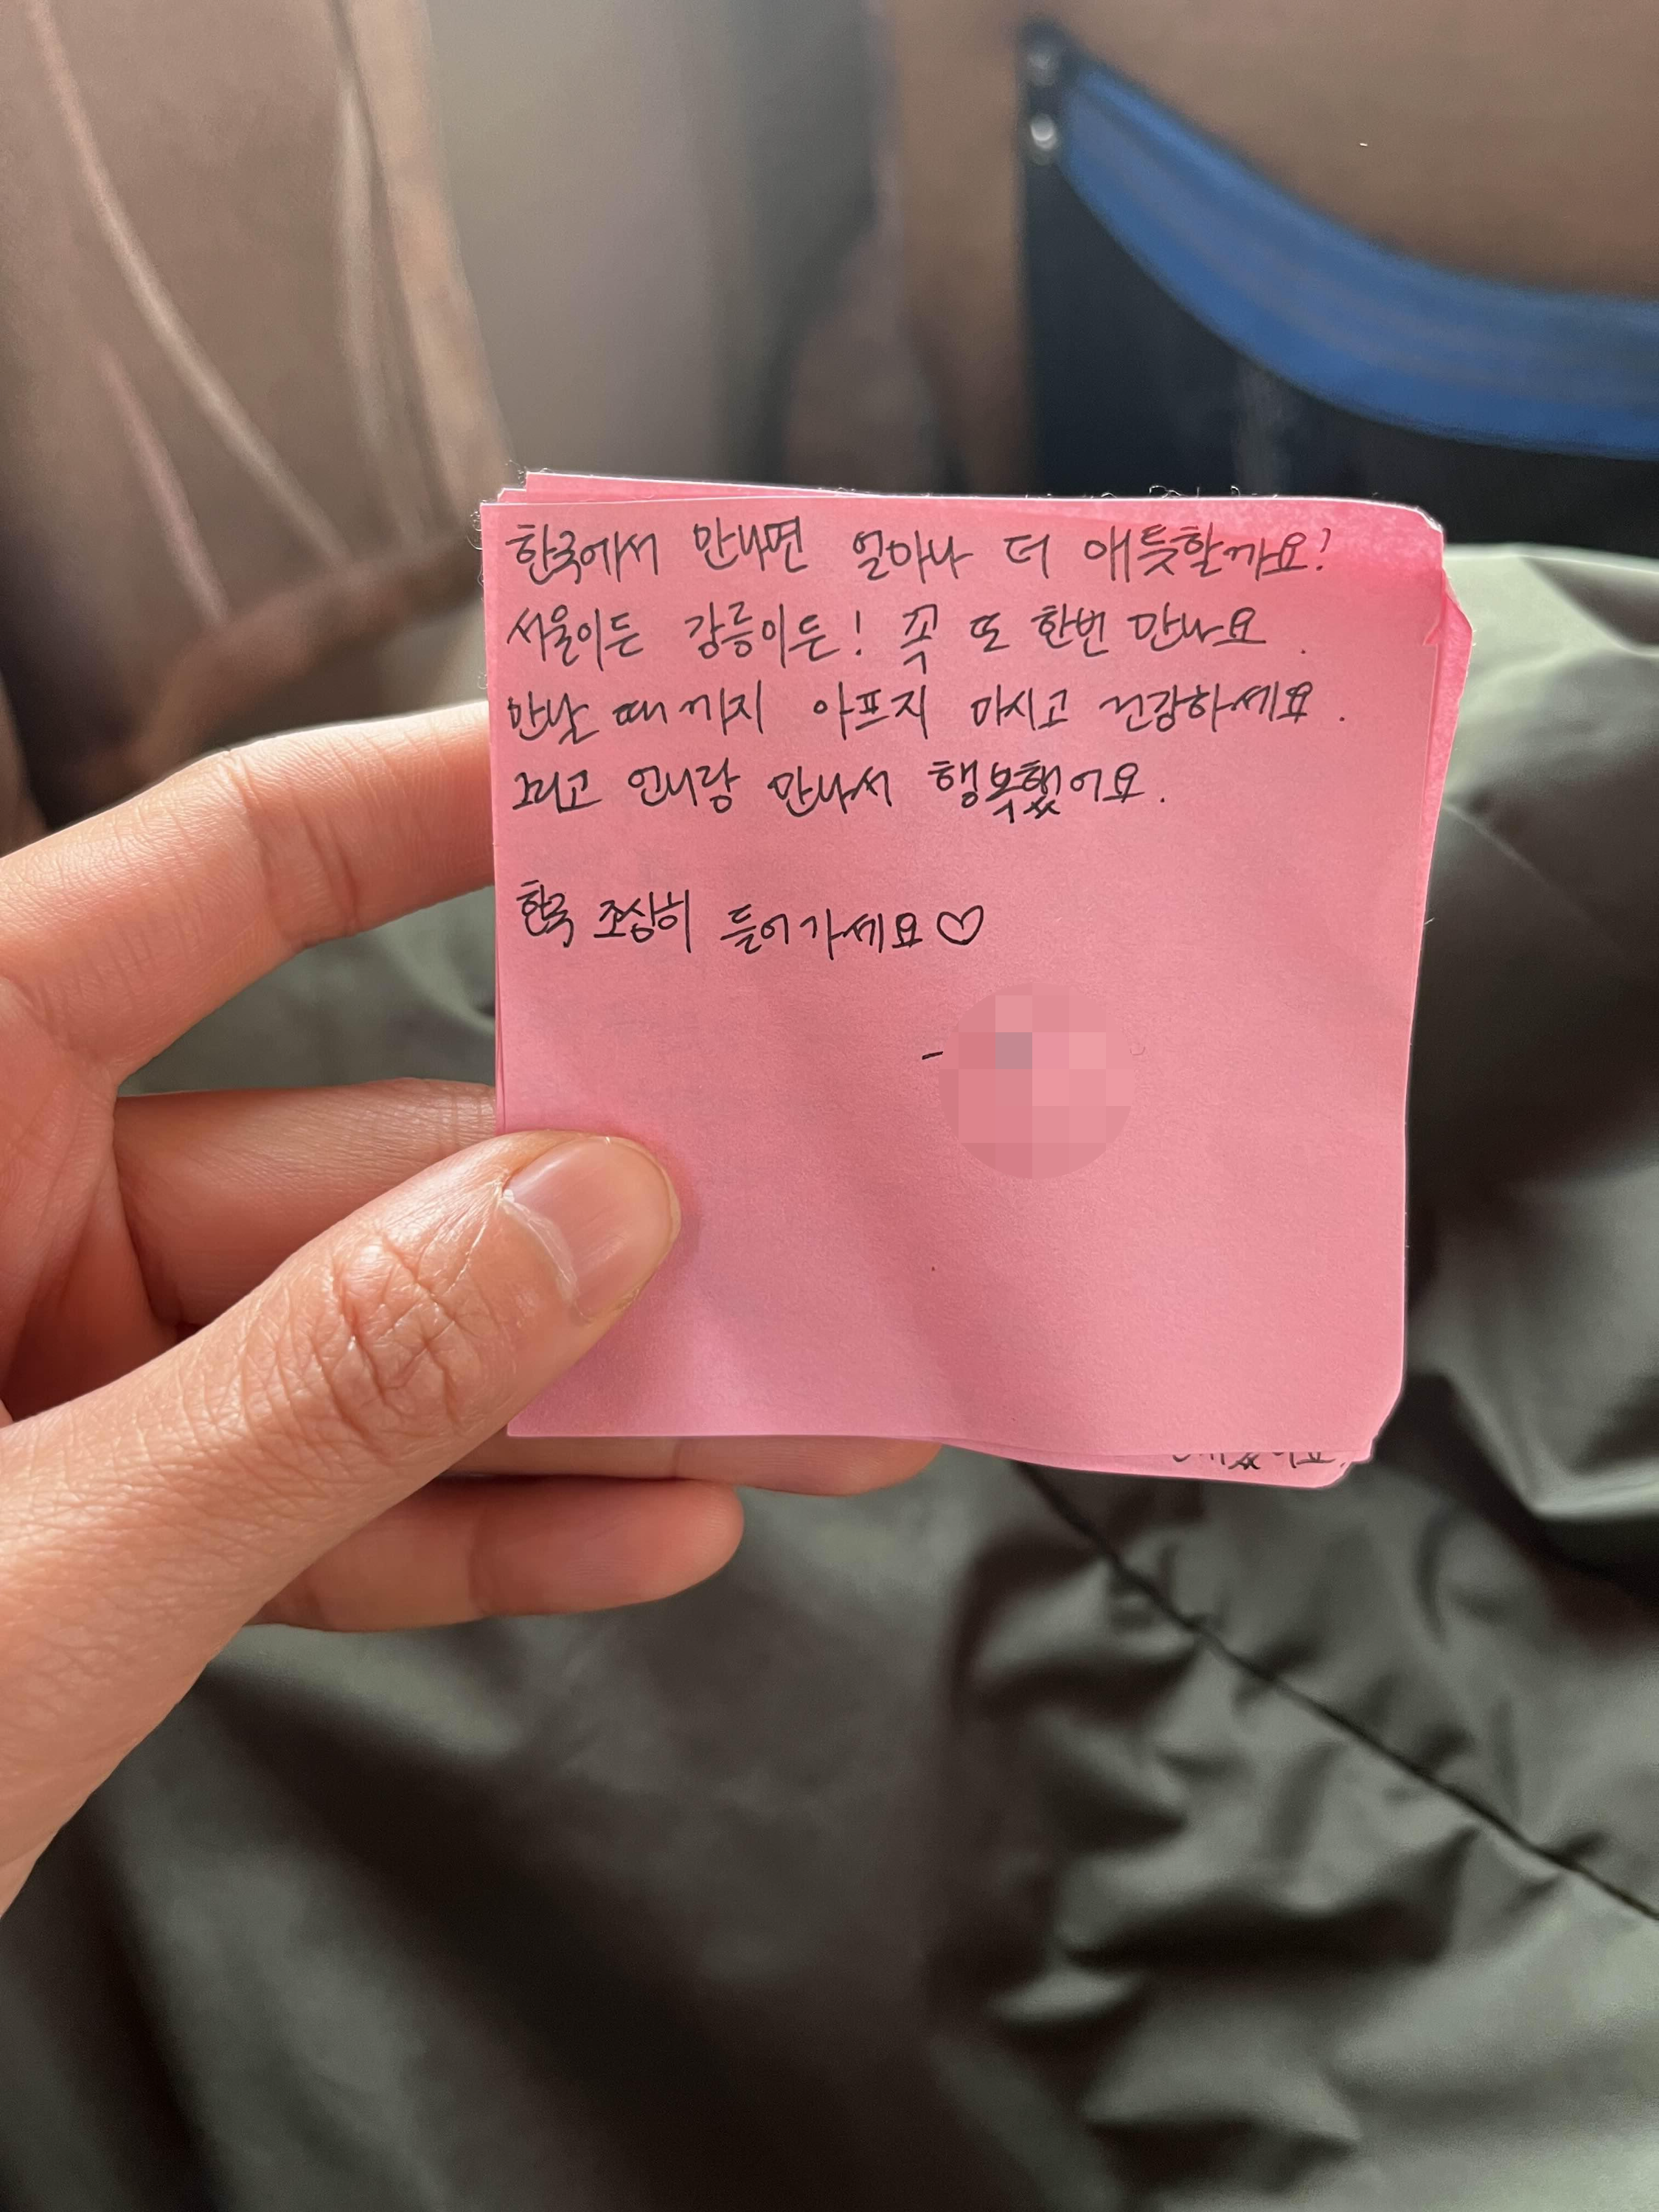 한국에서 만나면 얼마나 더 애틋할까요?
서울이든 강릉이든! 꼭 또 한번 만나요.
만날 때까지 아프지 마시고 건강하세요.
그리고 언니랑 만나서 행복했어요.
한국 조심히 들어가세요♡
-